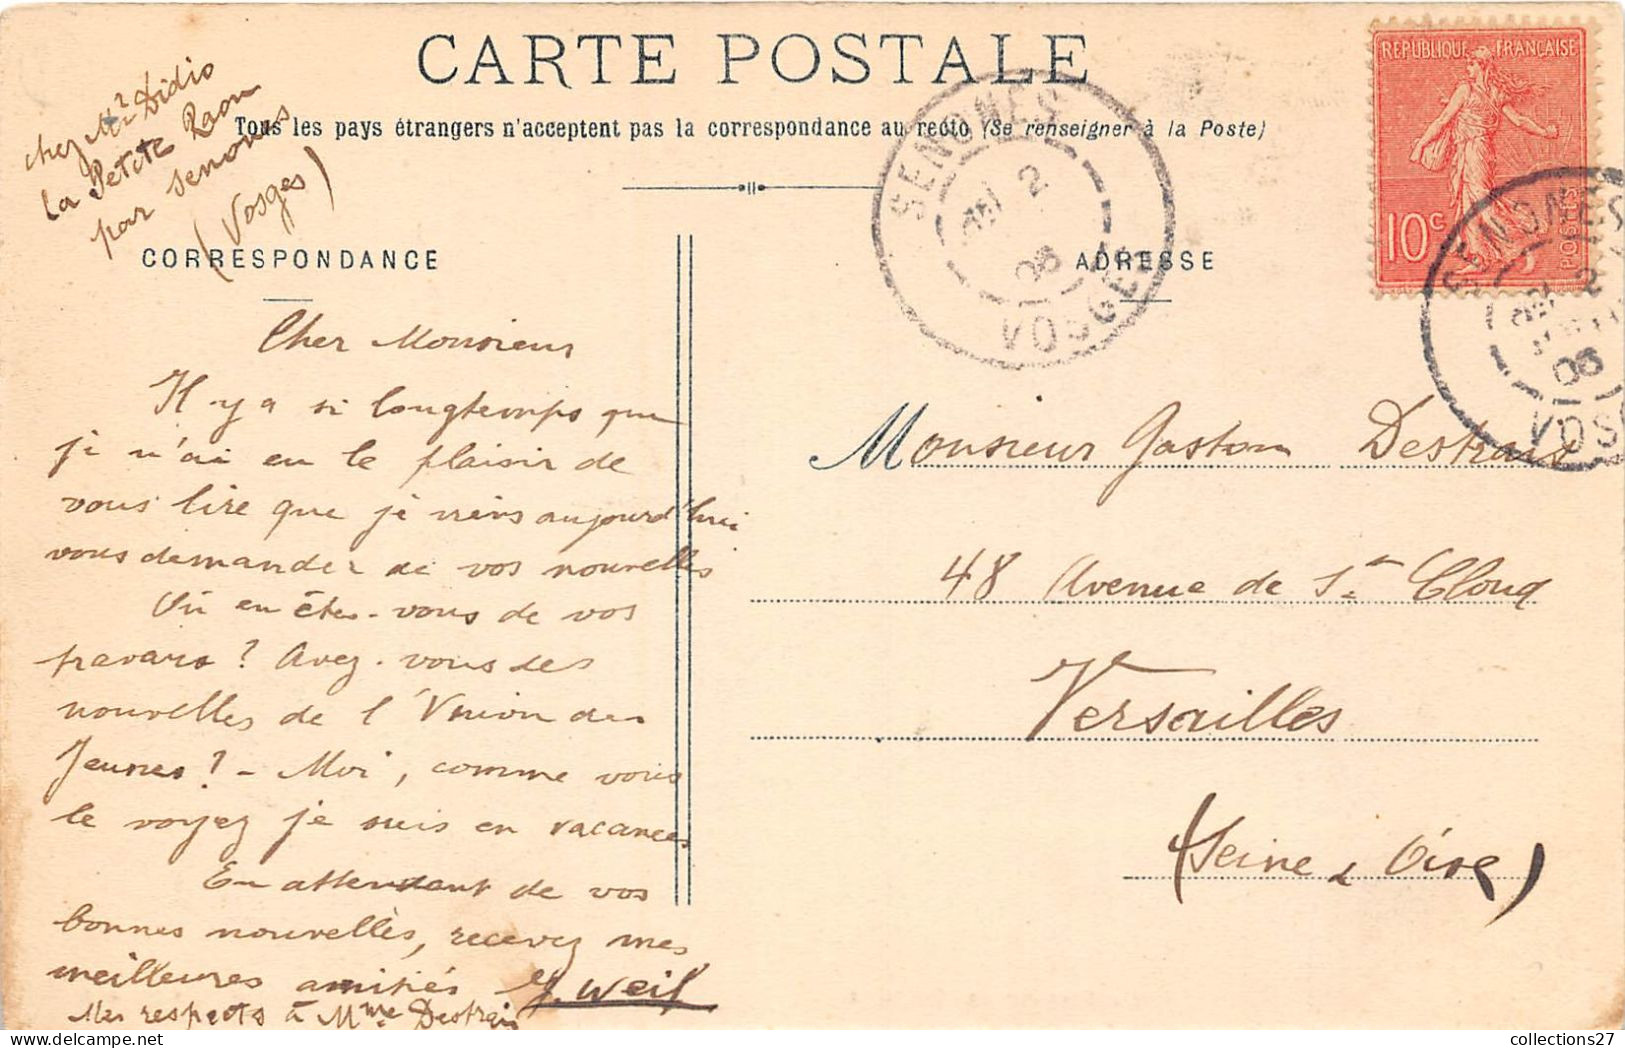 CARTE POSTALE
Tous les pays étrangers n'acceptent pas la correspondance au recto (Se renseigner à la Poste)
chez Mr Didio
la Petite Raon
par Senones
(Vosges)
CORRESPONDANCE
ADRESSE
REPUBLIQUE FRANÇAISE
10c
POSTES
SENONES
2
06
VOSGES
SENONES
2
06
VOSG
Cher Monsieur
Il y a si longtemps que
je n'ai eu le plaisir de
vous lire que je viens aujourd'hui
vous demander de vos nouvelles
Où en êtes-vous de vos
travaux ? Avez-vous des
nouvelles de l'Union des
Jeunes ? - Moi, comme vous
le voyez je suis en vacances
En attendant de vos
bonnes nouvelles, recevez mes
meilleures amitiés J. Weil
Mes respects à Mme Destrais
Monsieur Gaston Destrais
48 Avenue de St Cloud
Versailles
(Seine & Oise)
collections27